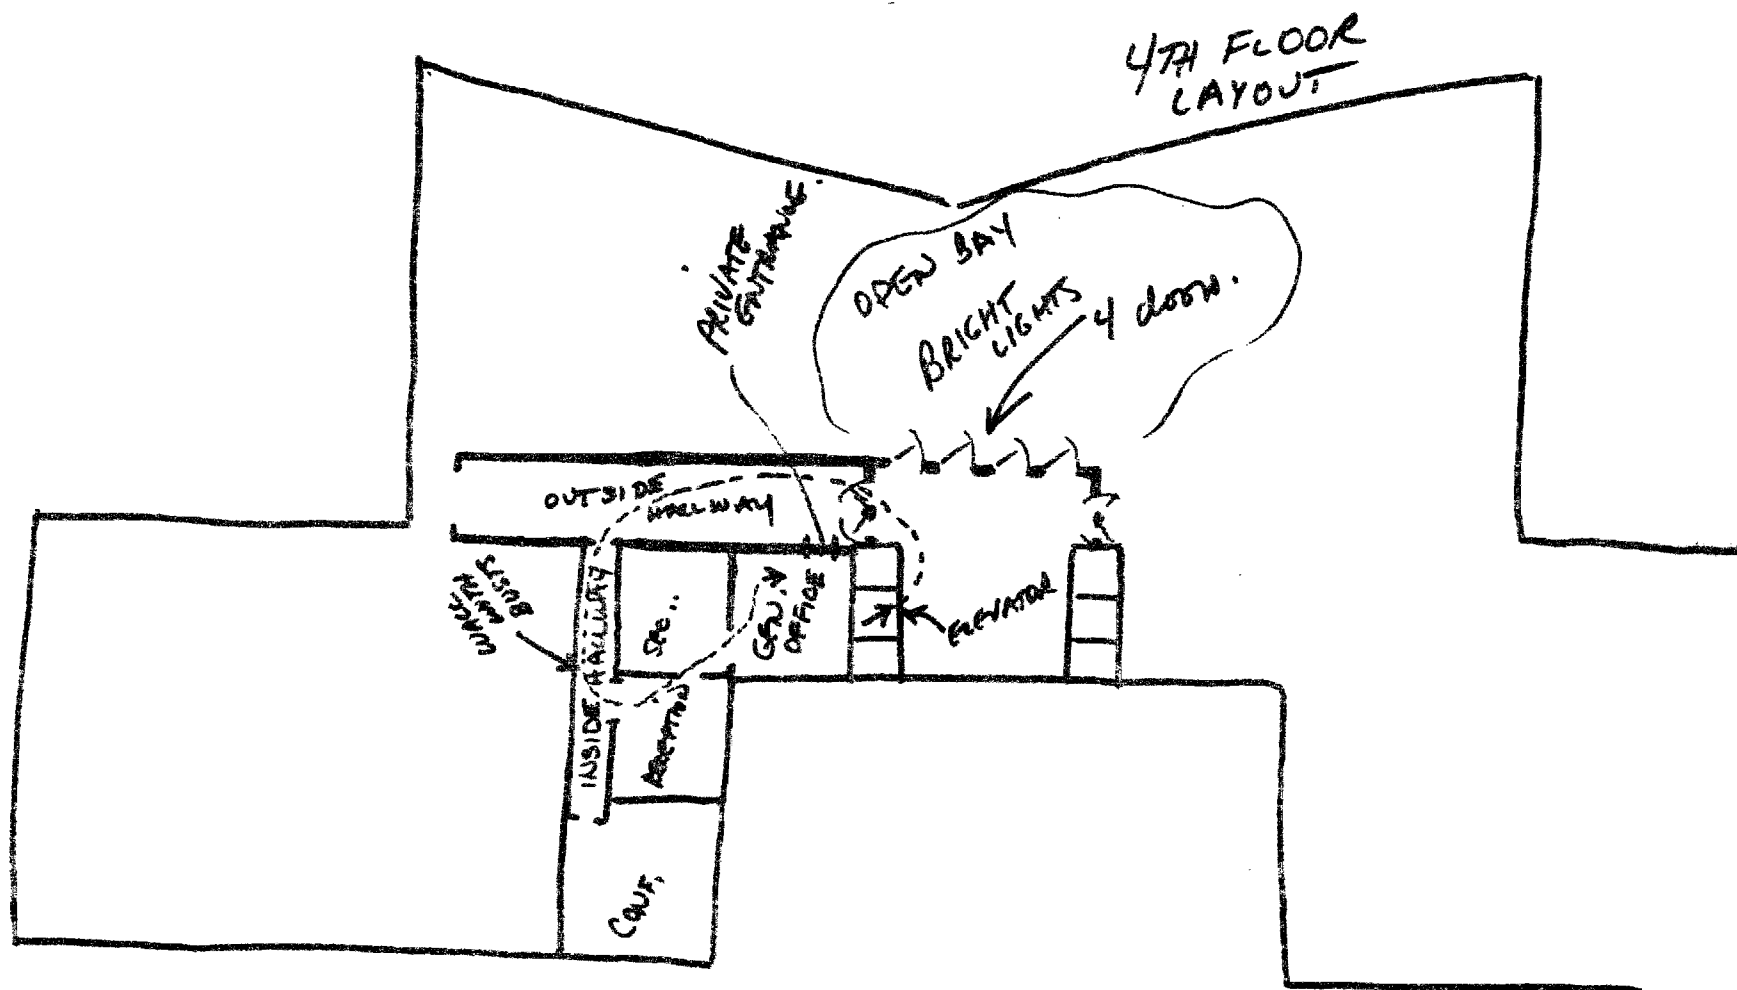 4TH FLOOR
LAYOUT
PRIVATE
ENTRANCE.
OPEN BAY
BRIGHT
LIGHTS
4 doors.
OUTSIDE
HALLWAY
WALL
WITH
BUSTS
INSIDE HALLWAY
SEC..
GEN. V
OFFICE
ELEVATOR
RECEPTION
CONF.